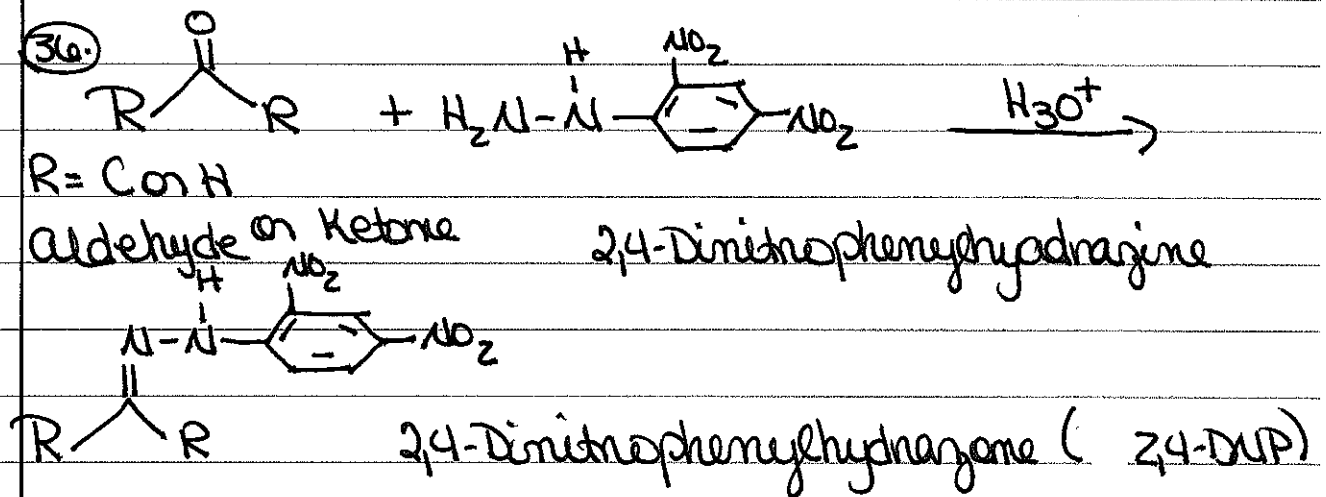 36.
O
R R + H2N-N-H NO2 NO2 H3O+
R= C or H
aldehyde or Ketone 2,4-Dinitrophenylhyadrazine
N-N-H NO2 NO2
R R 2,4-Dinitrophenylhydrazone ( 2,4-DNP)